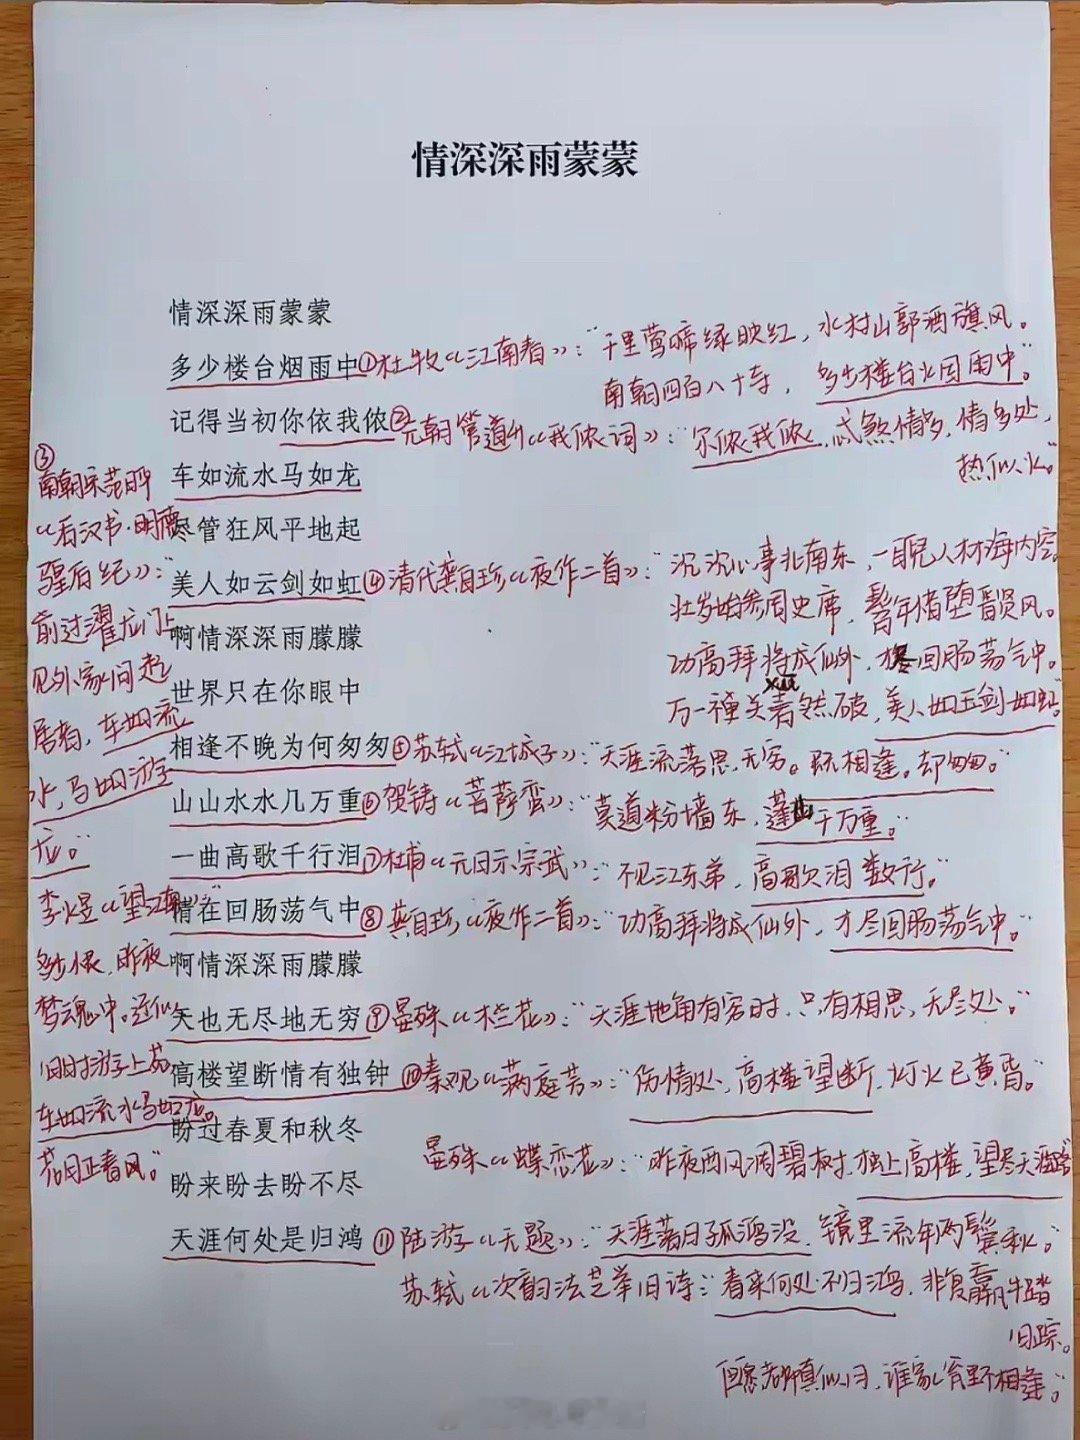 情深深雨蒙蒙
情深深雨蒙蒙
多少楼台烟雨中①杜牧《江南春》：“千里莺啼绿映红，水村山郭酒旗风。
南朝四百八十寺，多少楼台烟雨中。”
记得当初你依我侬②元朝管道升《我侬词》：“尔侬我侬，忒煞情多，情多处，
热似火。”
车如流水马如龙
③
南朝宋范晔
《后汉书·明德
皇后纪》：“
前过濯龙门上
见外家问起
居者，车如流
水，马如游
龙。”
李煜《望江南》：“
多少恨，昨夜
梦魂中。还似
旧时游上苑
车如流水马如龙。
花月正春风。”
尽管狂风平地起
美人如云剑如虹④清代龚自珍《夜作二首》：“沉沉心事北南东，一睨人材海内空。
壮岁始参周史席，髫年惜堕晋贤风。
功高拜将成仙外，才尽回肠荡气中。
万一禅关砉然破，美人如玉剑如虹。”
xū
啊情深深雨朦朦
世界只在你眼中
相逢不晚为何匆匆⑤苏轼《江城子》：“天涯流落思无穷。既相逢。却匆匆。”
山山水水几万重⑥贺铸《菩萨蛮》：“莫道粉墙东，蓬山千万重。”
一曲高歌千行泪⑦杜甫《元日示宗武》：“不见江东弟，高歌泪数行。”
情在回肠荡气中⑧龚自珍《夜作二首》：“功高拜将成仙外，才尽回肠荡气中。”
啊情深深雨朦朦
天也无尽地无穷⑨晏殊《木兰花》：“天涯地角有穷时，只有相思，无尽处。”
高楼望断情有独钟⑩秦观《满庭芳》：“伤情处，高楼望断，灯火已黄昏。”
盼过春夏和秋冬
晏殊《蝶恋花》：“昨夜西风凋碧树，独上高楼，望尽天涯路”
盼来盼去盼不尽
天涯何处是归鸿⑪陆游《无题》：“天涯落日孤鸿没，镜里流年两鬓秋。”
苏轼《次韵法芝举旧诗》：“春来何处不归鸿，非复羸牛踏
旧踪。
但愿老师真似月，谁家瓮里不相逢。”